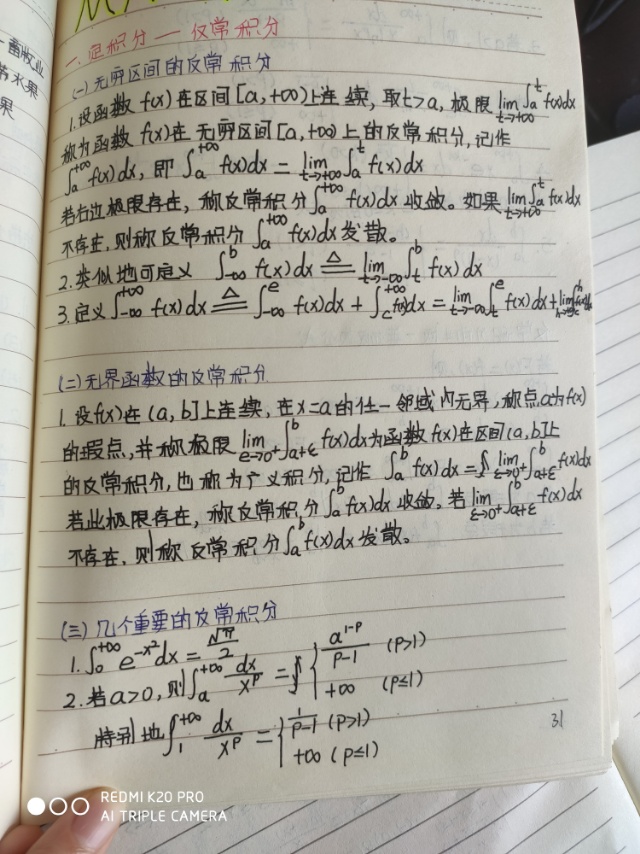 畜牧业
常水果
果
一.定积分——反常积分
(一)无穷区间的反常积分
1.设函数 f(x)在区间[a,+∞)上连续,取t>a,极限 lim_{t→+∞}∫_a^t f(x)dx
称为函数 f(x)在无穷区间[a,+∞)上的反常积分,记作
∫_a^{+∞} f(x)dx, 即 ∫_a^{+∞} f(x)dx = lim_{t→+∞}∫_a^t f(x)dx
若右边极限存在,称反常积分∫_a^{+∞} f(x)dx 收敛。如果 lim_{t→+∞}∫_a^t f(x)dx
不存在,则称反常积分 ∫_a^{+∞} f(x)dx发散。
2.类似地可定义 ∫_{-∞}^b f(x)dx ≜ lim_{t→-∞}∫_t^b f(x)dx
3.定义∫_{-∞}^{+∞} f(x)dx ≜ ∫_{-∞}^c f(x)dx + ∫_c^{+∞} f(x)dx = lim_{t→-∞}∫_t^c f(x)dx +
(二)无界函数的反常积分
1.设f(x)在(a,b]上连续,在x=a的任一邻域内无界,称点a为f(x)
的瑕点,并称极限 lim_{ε→0+}∫_{a+ε}^b f(x)dx为函数f(x)在区间(a,b]上
的反常积分,也称为广义积分,记作 ∫_a^b f(x)dx = lim_{ε→0+}∫_{a+ε}^b f(x)dx
若此极限存在,称反常积分∫_a^b f(x)dx 收敛,若 lim_{ε→0+}∫_{a+ε}^b f(x)dx
不存在,则称反常积分∫_a^b f(x)dx发散。
(三)几个重要的反常积分
1.∫_0^{+∞} e^{-x²}dx = √π/2
2.若a>0,则∫_a^{+∞} dx/x^p = { a^{1-p}/(p-1) (p>1)
+∞ (p≤1)
特别地∫_1^{+∞} dx/x^p = { 1/(p-1) (p>1)
+∞ (p≤1)
31
REDMI K20 PRO
AI TRIPLE CAMERA